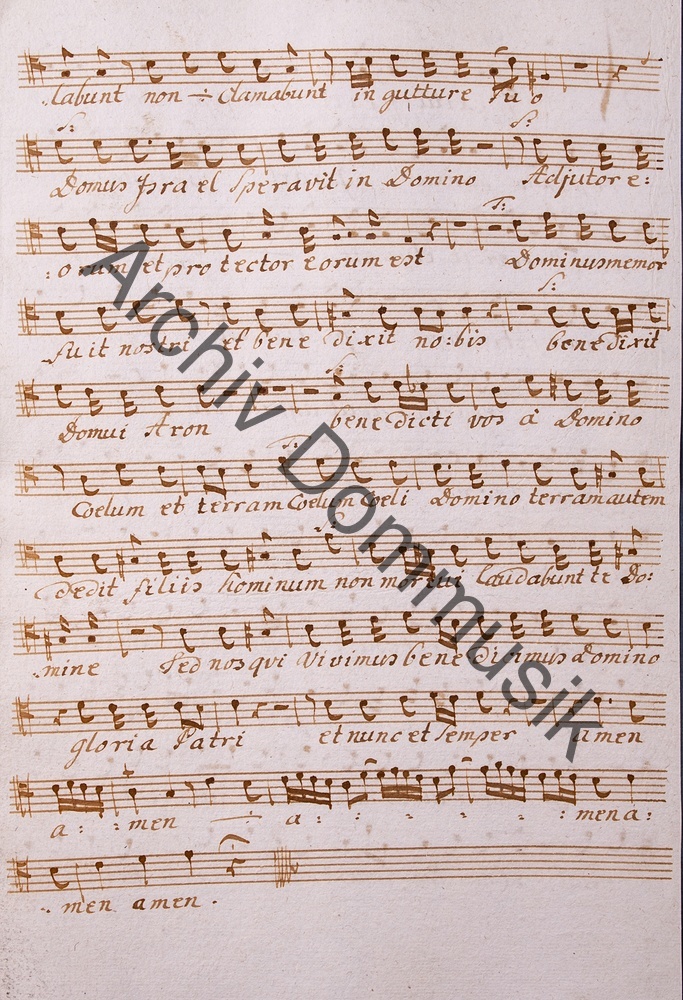 :labunt non ÷ Clamabunt in gutture suo
S:
S:
Domus Israel Speravit in Domino Adjutor e:
T:
:orum et protector eorum est Dominus memor
S:
fuit nostri et benedixit no:bis benedixit
S:
Domui Aron benedicti vos à Domino
T:
Coelum et terram Coelum Coeli Domino terram autem
dedit filiis hominum non mortui laudabunt te Do:
:mine Sed nos qui Vivimus benedicimus Domino
gloria Patri et nunc et Semper amen
a: : men ÷ a: : - - - : men a:
:men amen.
Archiv Dommusik